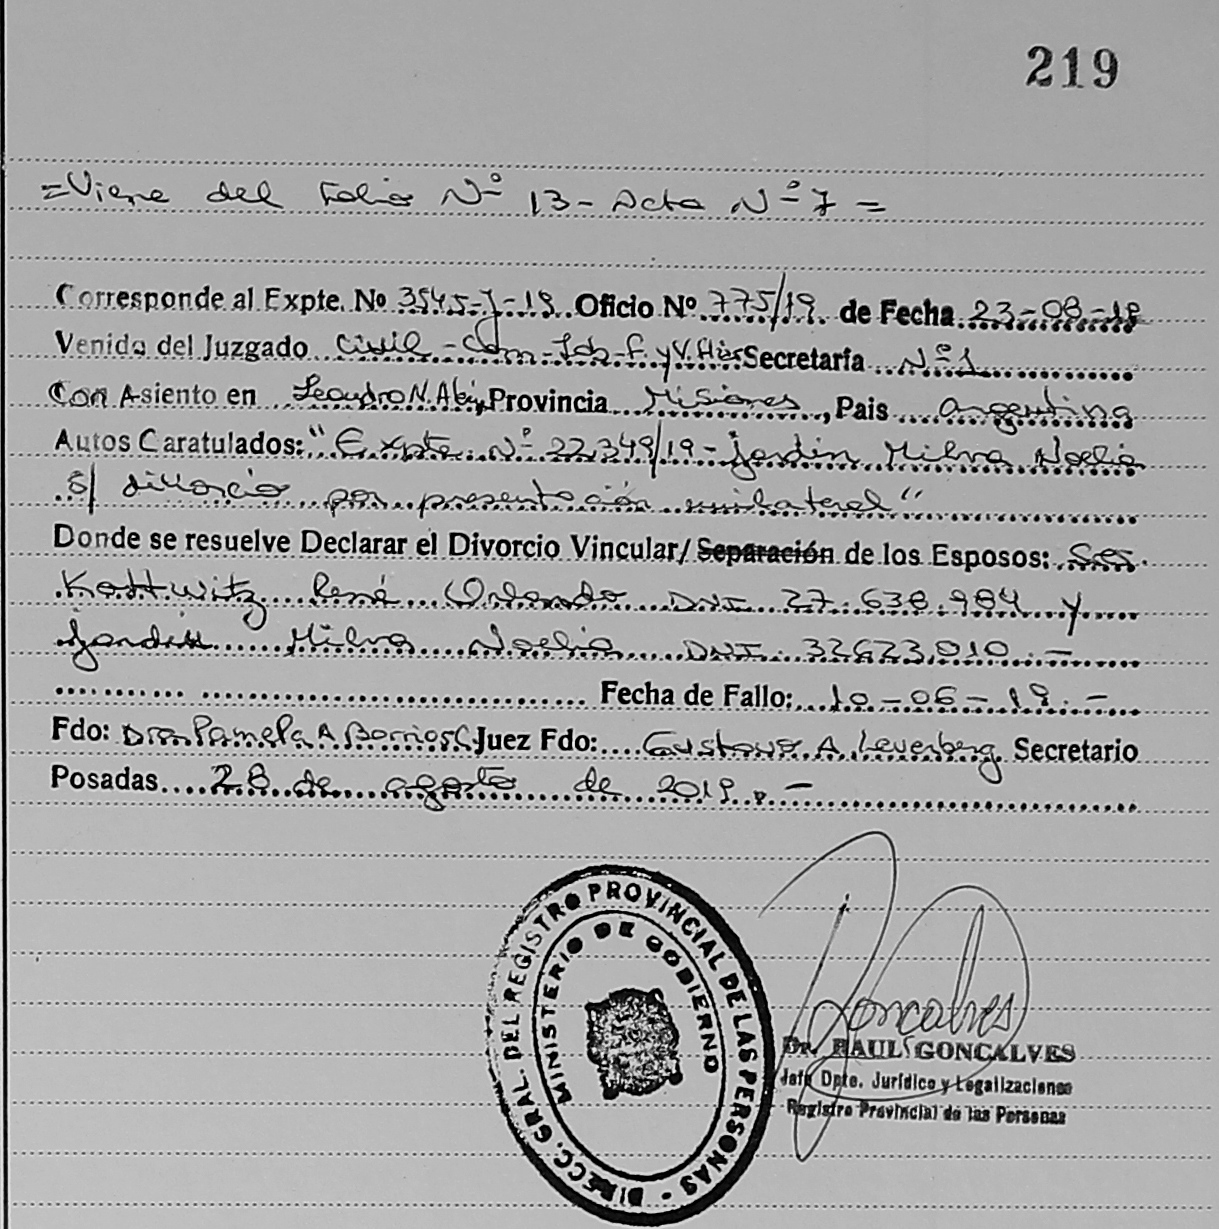 219
=Viene del Folio Nº 13- Acta Nº 7 =
Corresponde al Expte. Nº 3545-J-19 Oficio Nº 775/19. de Fecha 23-08-19
Venido del Juzgado Civil-Com-Lab-F. y V. Secretaría Nº 1
Con Asiento en Leandro N. Provincia Misiones, Pais Argentina
Autos Caratulados: "Expte. Nº 22.349/19- Jardin Milva Noelia
s/ divorcio por presentación unilateral"
Donde se resuelve Declarar el Divorcio Vincular/ Separación de los Esposos: Sres.
Kottwitz René Orlando DNI 27.638.984 y
Jardin Milva Noelia DNI. 33623.010.-
Fecha de Fallo: 10-06-19.-
Fdo: Dra. Pamela A Barrios C. Juez Fdo: Gustavo A. Levenberg Secretario
Posadas 28 de agosto de 2019.-
DIRECC. GRAL. DEL REGISTRO PROVINCIAL DE LAS PERSONAS -
MINISTERIO DE GOBIERNO
Goncalves
Dr. RAUL GONCALVES
Jefe Dpto. Jurídico y Legalizaciones
Registro Provincial de las Personas